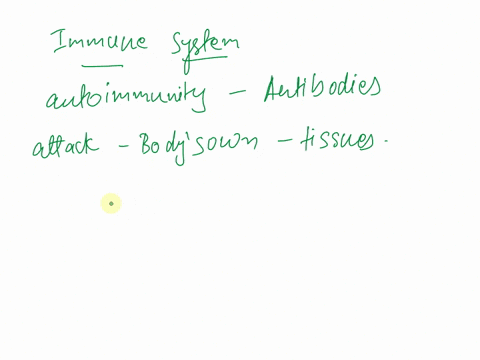 Immune System
autoimmunity - Antibodies
attack - Body's own - tissues.